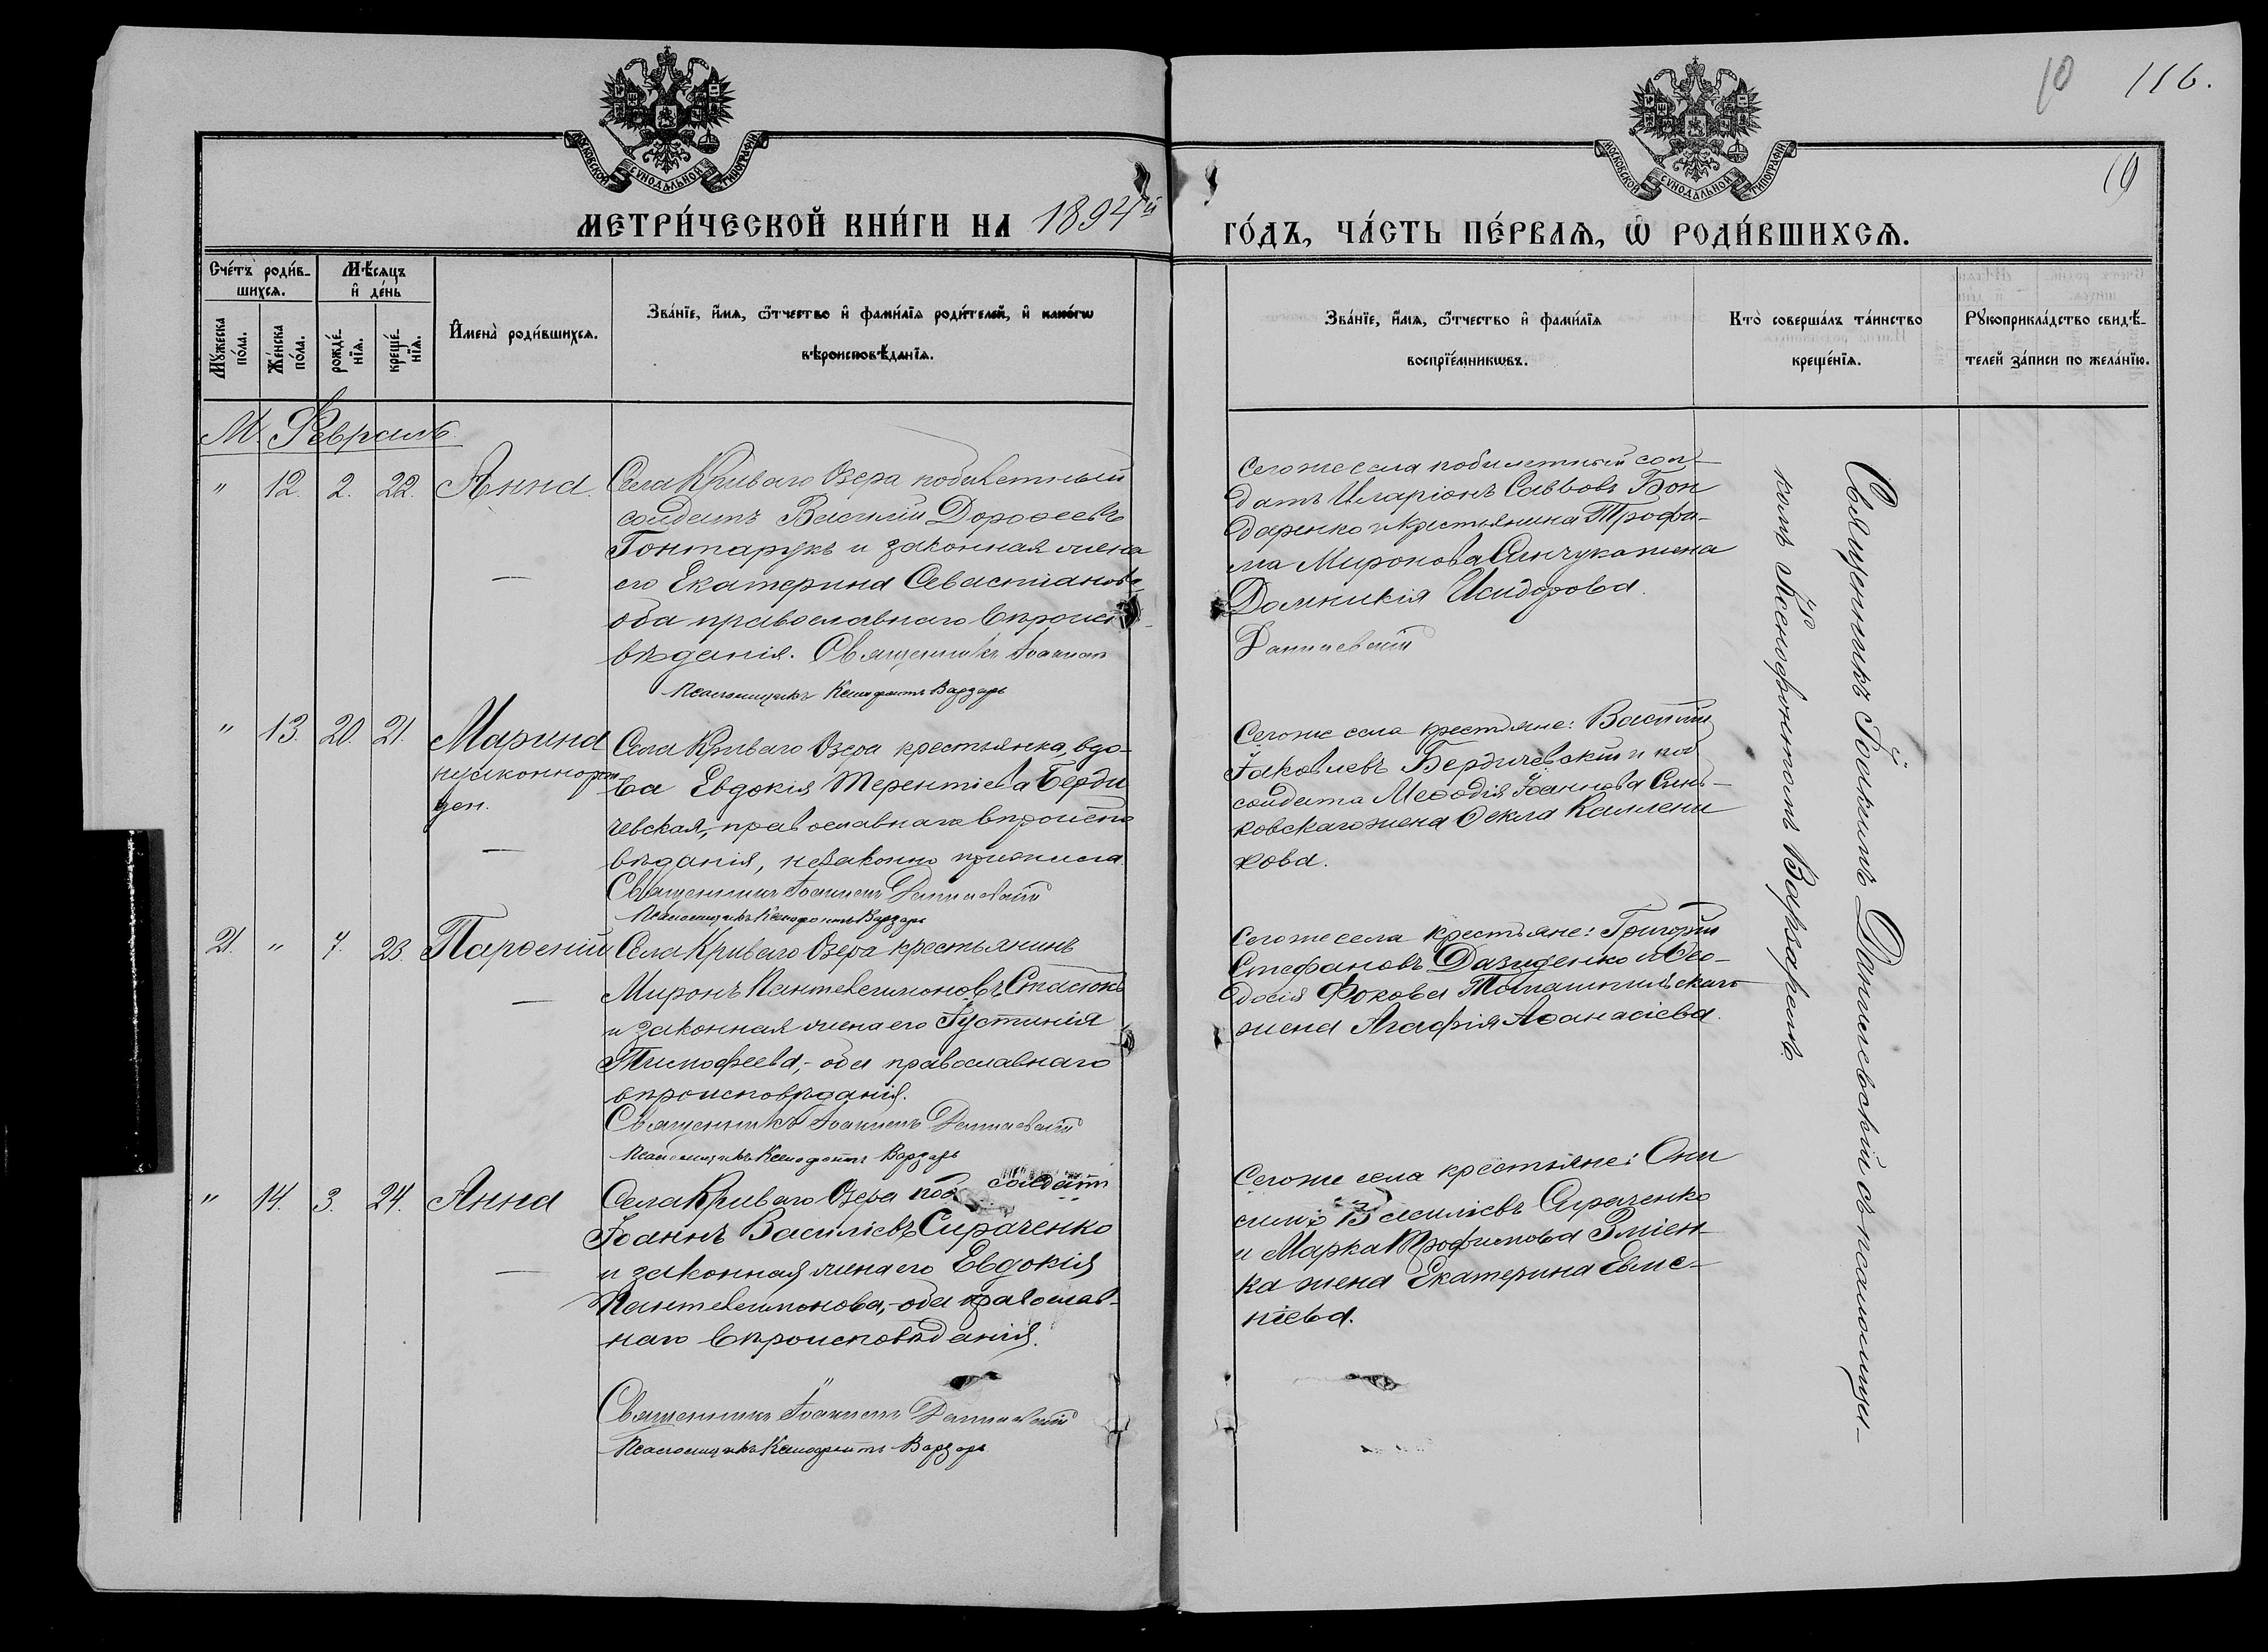 10 116.
19
МОСКОВСКОЙ СѴНОДАЛЬНОЙ ТИПОГРАФІИ
МОСКОВСКОЙ СѴНОДАЛЬНОЙ ТИПОГРАФІИ
МЕТРИ́ЧЕСКОЙ КНИ́ГИ НА 1894й
ГО́ДЪ, ЧА́СТЬ ПЕ́РВАѦ, Ѡ҆ РОДИ́ВШИХСѦ.
Сче́тъ роди́в-
шихсѧ.
Мꙋ́жеска по́ла.
Же́нска по́ла.
Мѣ́сѧцъ
и҆ де́нь
рожде́-
нїѧ.
креще́-
нїѧ.
И҆мена̀ роди́вшихсѧ.
Зва́нїе, и҆́мѧ, ѻ҆́тчество и҆ фами́лїѧ роди́телей, и҆ како́гѡ
вѣроисповѣ́данїѧ.
Зва́нїе, и҆́мѧ, ѻ҆́тчество и҆ фами́лїѧ
воспрїе́мникѡвъ.
Кто̀ соверша́лъ та́инство
креще́нїѧ.
Рꙋкоприкла́дство свидѣ́-
телей за́писи по жела́нїю.
М. Февраль
" 12. 2. 22. Анна.
Села Криваго Озера побилетный
солдатъ Василій Дороѳеевъ
Гонтарукъ и законная жена
его Екатерина Севастіанова
оба православнаго вѣроиспо-
вѣданія. Священникъ Іоакимъ
Псаломщикъ Ксенофонтъ Варзарь
Сего же села побилетный сол-
датъ Иларіонъ Саввовъ Бон
даренко и крестьянина Трофи-
ма Миронова жена
Домникія Исидорова.
Даниевскій
" 13. 20. 21. Марина
незаконнорож
ден.
Села Криваго Озера крестьянка, вдо-
ва Евдокія Терентіева Берди
чевская, православнаго вѣроиспо
вѣданія, незаконно прижила.
Священникъ Іоакимъ Даниевскій
Псаломщикъ Ксенофонтъ Варзарь
Сего же села крестьяне: Василій
Іаковлевъ Бердичевскій и поб
солдата Меѳодія Іоаннова Синь-
ковскаго жена Ѳекла Каллени
кова.
21. " 7. 23. Парѳеній
Села Криваго Озера крестьянинъ
Миронъ Пантелеимоновъ Стасюкъ
и законная жена его Іустинія
Тимофеева,- оба православнаго
вѣроисповѣданія.
Священникъ Іоакимъ Даниевскій
Псаломщикъ Ксенофонтъ Варзарь
Сего же села крестьяне: Григорій
Стефановъ Давиденко и Ѳео-
досія Фокова
жена Агафія Аѳанасіева.
" 14. 3. 24. Анна
Села Криваго Озера поб. солдатъ
Іоаннъ Василіевъ Сираченко
и законная жена его Евдокія
Пантелеимонова,- оба православ-
наго вѣроисповѣданія.
Священникъ Іоакимъ Даниевскій
Псаломщикъ Ксенофонтъ Варзарь
Сего же села крестьяне: Они
симъ Василіевъ Сираченко
и Марка Трофимова Зміен-
ка жена Екатерина Евме-
ніева.
Священникъ Іоакимъ Даниевскій съ псаломщи-
комъ Ксенофонтомъ Варзаремъ.